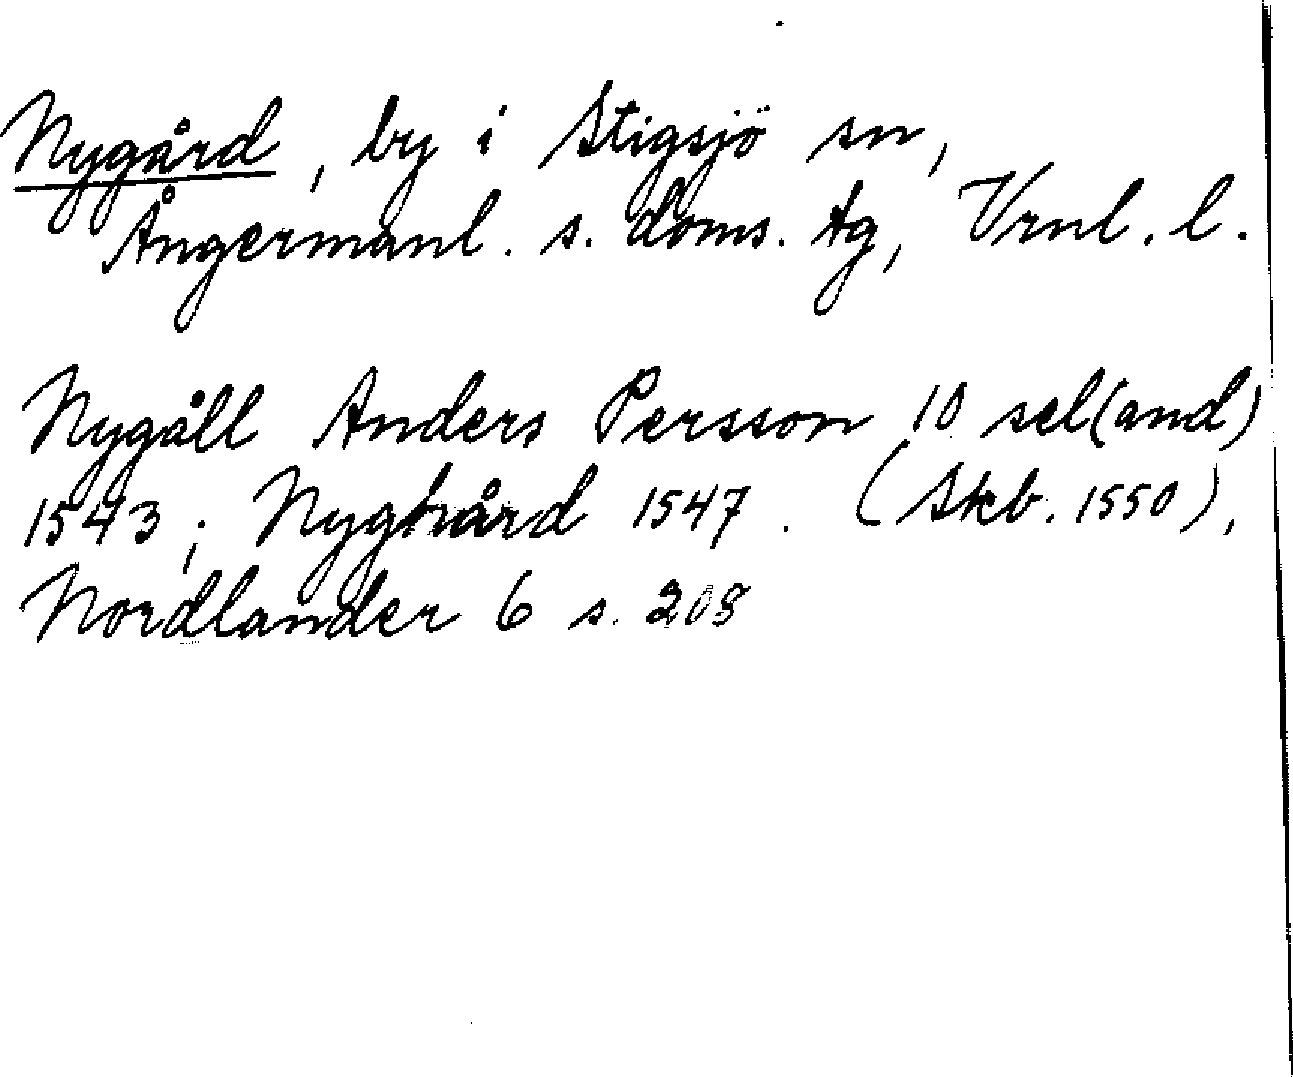 Nygård, by i Stigsjö sn,
Ångermanl. s. doms. tg, Vrnl. l.
Nygåll Anders Persson 10 sel(and)
1543; Nyghård 1547. (Skb. 1550),
Nordlander 6 s. 208